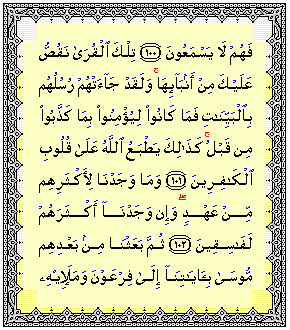 فَهُمْ لَا يَسْمَعُونَ ١٠٠ تِلْكَ ٱلْقُرَىٰ نَقُصُّ
عَلَيْكَ مِنْ أَنۢبَآئِهَا ۚ وَلَقَدْ جَآءَتْهُمْ رُسُلُهُم
بِٱلْبَيِّنَٰتِ فَمَا كَانُوا۟ لِيُؤْمِنُوا۟ بِمَا كَذَّبُوا۟
مِن قَبْلُ ۚ كَذَٰلِكَ يَطْبَعُ ٱللَّهُ عَلَىٰ قُلُوبِ
ٱلْكَٰفِرِينَ ١٠١ وَمَا وَجَدْنَا لِأَكْثَرِهِم
مِّنْ عَهْدٍ ۖ وَإِن وَجَدْنَآ أَكْثَرَهُمْ
لَفَٰسِقِينَ ١٠٢ ثُمَّ بَعَثْنَا مِنۢ بَعْدِهِم
مُّوسَىٰ بِـَٔايَٰتِنَآ إِلَىٰ فِرْعَوْنَ وَمَلَإِي۟هِۦ